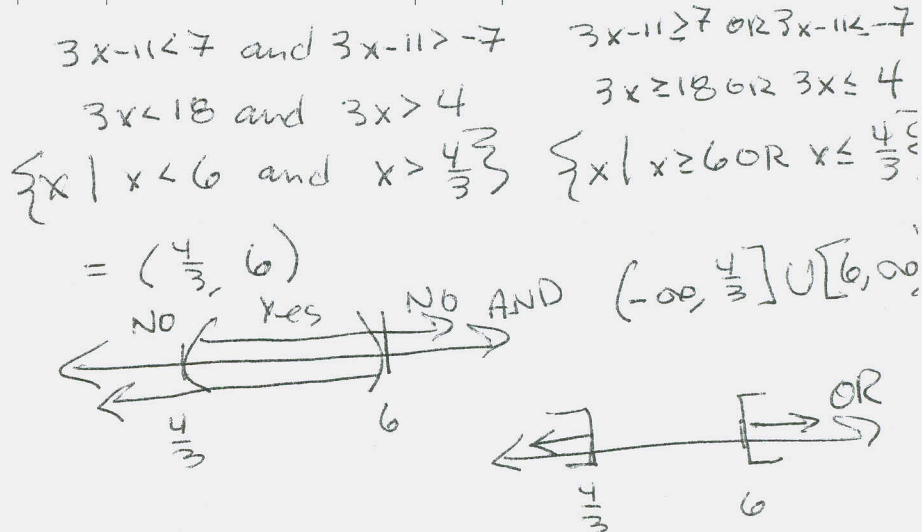 3x-11<7 and 3x-11>-7
3x<18 and 3x>4
{x | x<6 and x>4/3}
= (4/3, 6)
NO Yes NO AND
4/3 6
3x-11≥7 OR 3x-11≤-7
3x≥18 OR 3x≤4
{x | x≥6 OR x≤4/3}
(-∞, 4/3] ∪ [6, ∞
OR
4/3 6